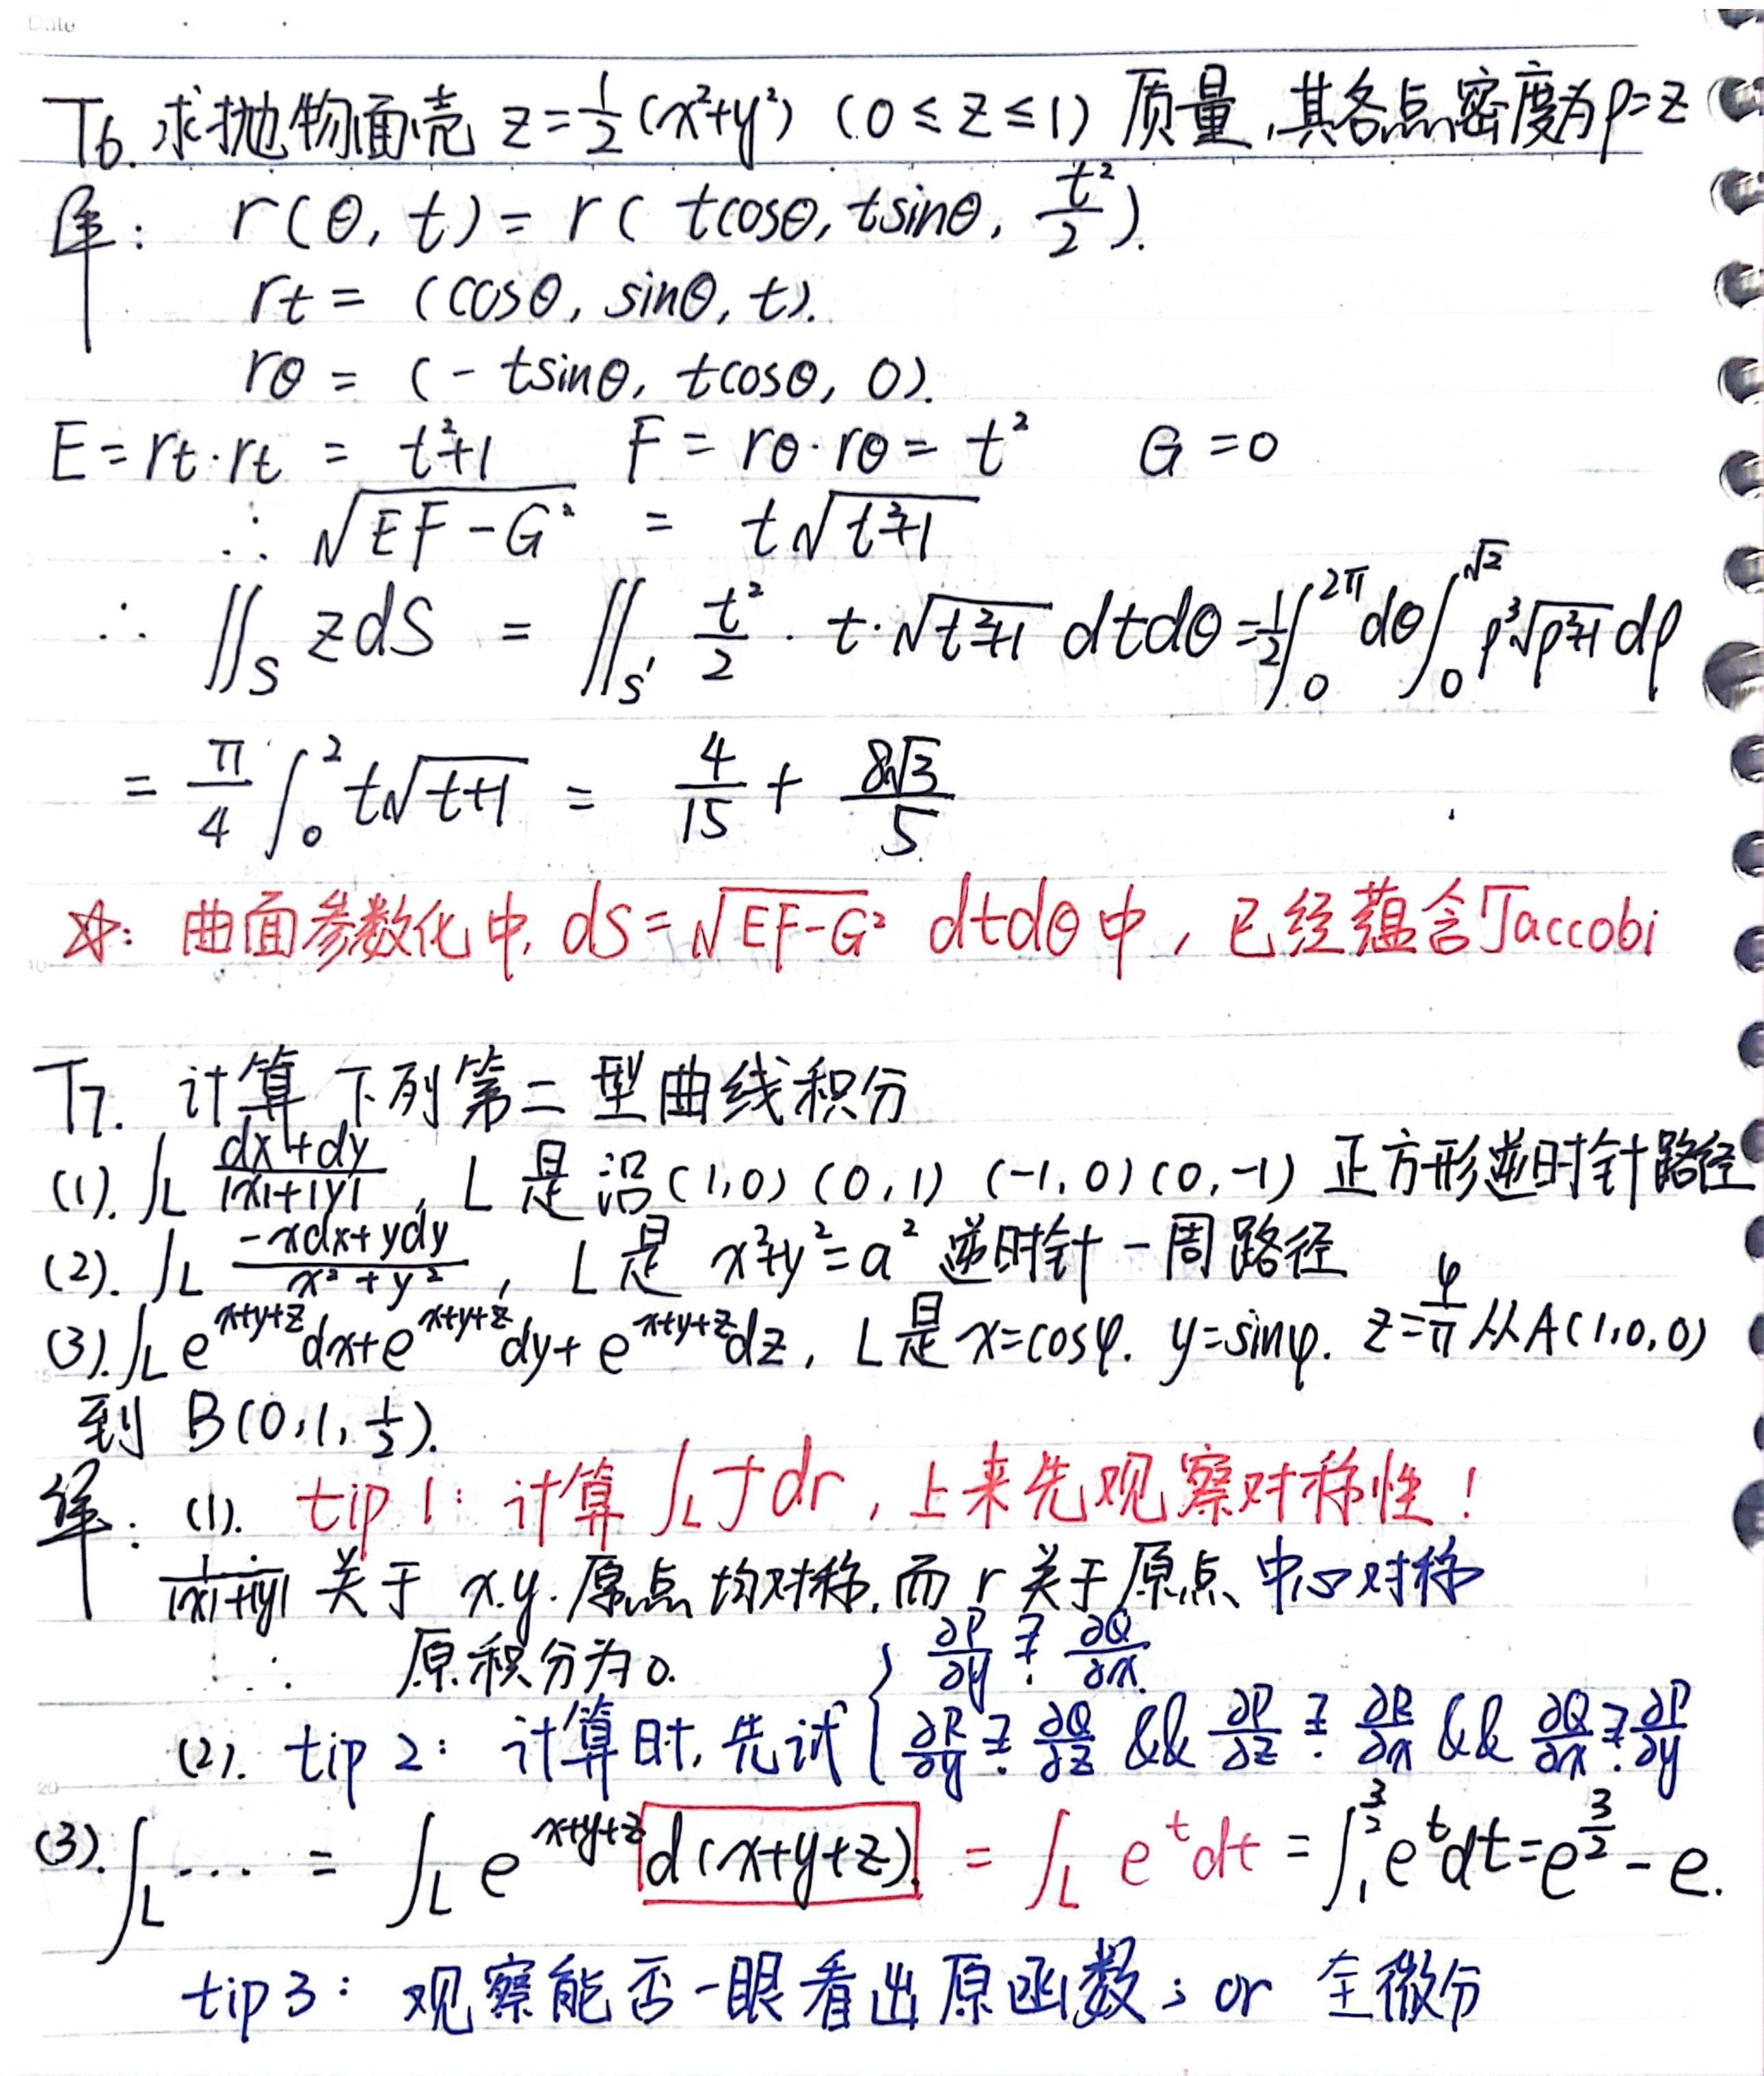 Date
T6. 求抛物面壳 z=½(x²+y²) (0≤z≤1) 质量,其各点密度为ρ=z
解: r(θ, t) = r( tcosθ, tsinθ, t²/2 ).
rt = (cosθ, sinθ, t).
rθ = (- tsinθ, tcosθ, 0).
E = rt·rt = t²+1 F = rθ·rθ = t² G = 0
∴ √(EF-G²) = t√(t²+1)
∴ ∬_S zdS = ∬_S' t²/2 · t·√(t²+1) dtdθ = ½∫₀^{2π} dθ ∫₀^{√2} ρ³√(ρ²+1) dρ
= π/4 ∫₀² t√(t+1) = 4/15 + 8√3/5
☆: 曲面参数化中, dS = √(EF-G²) dtdθ 中, 已经蕴含Jaccobi
T7. 计算下列第二型曲线积分
(1). ∫_L (dx+dy)/(|x|+|y|), L 是沿(1,0) (0,1) (-1,0) (0,-1) 正方形逆时针路径
(2). ∫_L (-xdx+ydy)/(x²+y²), L 是 x²+y²=a² 逆时针一周路径
(3). ∫_L e^{x+y+z}dx+e^{x+y+z}dy+e^{x+y+z}dz, L是 x=cosφ. y=sinφ. z=φ/π 从A(1,0,0)
到 B(0,1,½).
解: (1). tip 1: 计算 ∫_L f dr, 上来先观察对称性!
1/(|x|+|y|) 关于 x.y.原点均对称,而 r 关于原点 中心对称
∴ 原积分为0. { ∂P/∂y ≟ ∂Q/∂x
(2). tip 2: 计算时,先试 ∂R/∂y ≟ ∂Q/∂z && ∂P/∂z ≟ ∂R/∂x && ∂Q/∂x ≟ ∂P/∂y
(3). ∫_L ···· = ∫_L e^{x+y+z} d(x+y+z). = ∫_L e^t dt = ∫₁^{3/2} e^t dt = e^{3/2} - e.
tip 3: 观察能否一眼看出原函数; or 全微分